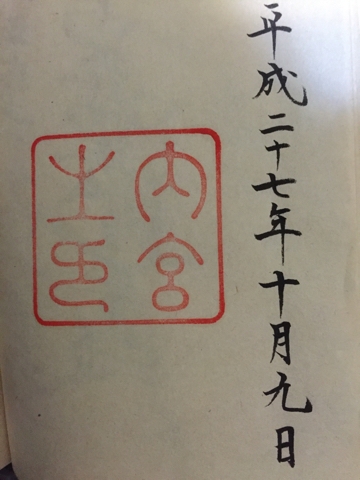 平成二十七年十月九日
内宮
之印